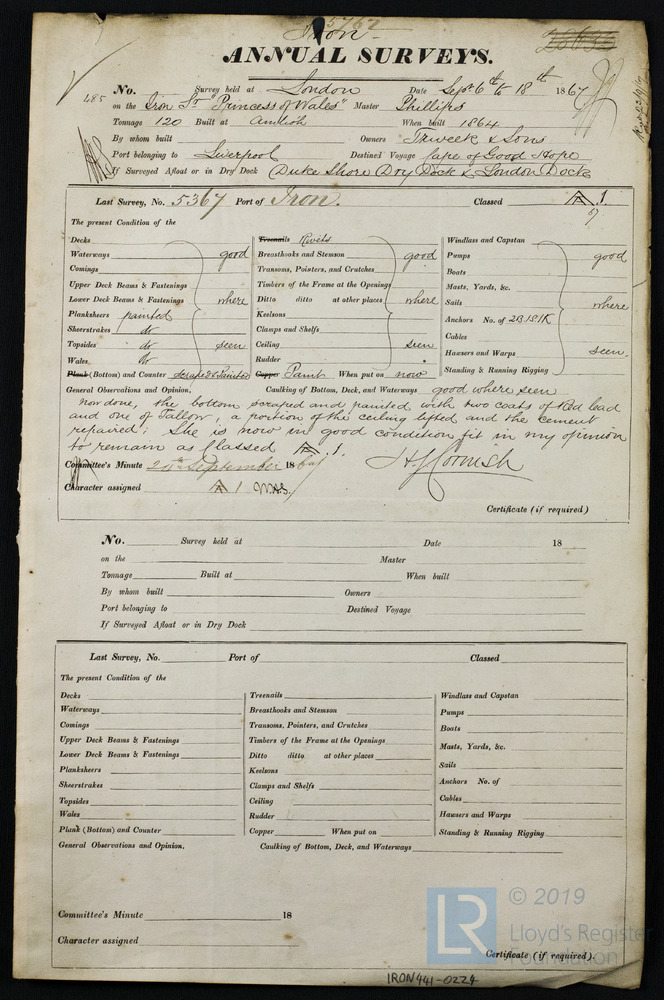 5767
Iron -
ANNUAL SURVEYS.
485
No. Survey held at London Date Septr 6th to 18th 1867
on the Iron Sr "Princess of Wales" Master Phillips
Tonnage 120 Built at When built 1864
By whom built Owners Triweek & Sons
Port belonging to Liverpool Destined Voyage Cape of Good Hope
If Surveyed Afloat or in Dry Dock (Duke Shore Dry Dock & London Docks
Last Survey, No. 5367 Port of Iron. Classed A 1.
67
The present Condition of the
Decks
Waterways good
Comings
Upper Deck Beams & Fastenings
Lower Deck Beams & Fastenings where
Planksheers painted
Sheerstrakes do
Topsides do seen
Wales do
Plank (Bottom) and Counter scraped & Painted
Treenails Rivets
Breasthooks and Stemson good
Transoms, Pointers, and Crutches
Timbers of the Frame at the Openings
Ditto ditto at other places where
Keelsons
Clamps and Shelfs
Ceiling seen
Rudder
Copper Paint When put on now
Windlass and Capstan
Pumps good
Boats
Masts, Yards, &c.
Sails where
Anchors No. of 2B 1S 1K
Cables
Hawsers and Warps seen.
Standing & Running Rigging
General Observations and Opinion, Caulking of Bottom, Deck, and Waterways good where seen
now done, the bottom scraped and painted with two coats of Red lead
and one of Tallow, a portion of the ceiling lifted and the cement
repaired; She is now in good condition, fit in my opinion
to remain as Classed A 1.
H J Cornish
Committee's Minute 20th September 1867
Character assigned A 1
Certificate (if required)
No. Survey held at Date 18
on the Master
Tonnage Built at When built
By whom built Owners
Port belonging to Destined Voyage
If Surveyed Afloat or in Dry Dock
Last Survey, No. Port of Classed
The present Condition of the
Decks
Waterways
Comings
Upper Deck Beams & Fastenings
Lower Deck Beams & Fastenings
Planksheers
Sheerstrakes
Topsides
Wales
Plank (Bottom) and Counter
Treenails
Breasthooks and Stemson
Transoms, Pointers, and Crutches
Timbers of the Frame at the Openings
Ditto ditto at other places
Keelsons
Clamps and Shelfs
Ceiling
Rudder
Copper When put on
Windlass and Capstan
Pumps
Boats
Masts, Yards, &c.
Sails
Anchors No. of
Cables
Hawsers and Warps
Standing & Running Rigging
General Observations and Opinion, Caulking of Bottom, Deck, and Waterways
Committee's Minute 18
Character assigned
Certificate (if required).
LR
© 2019
Lloyd's Register
Foundation
IRON441-0224